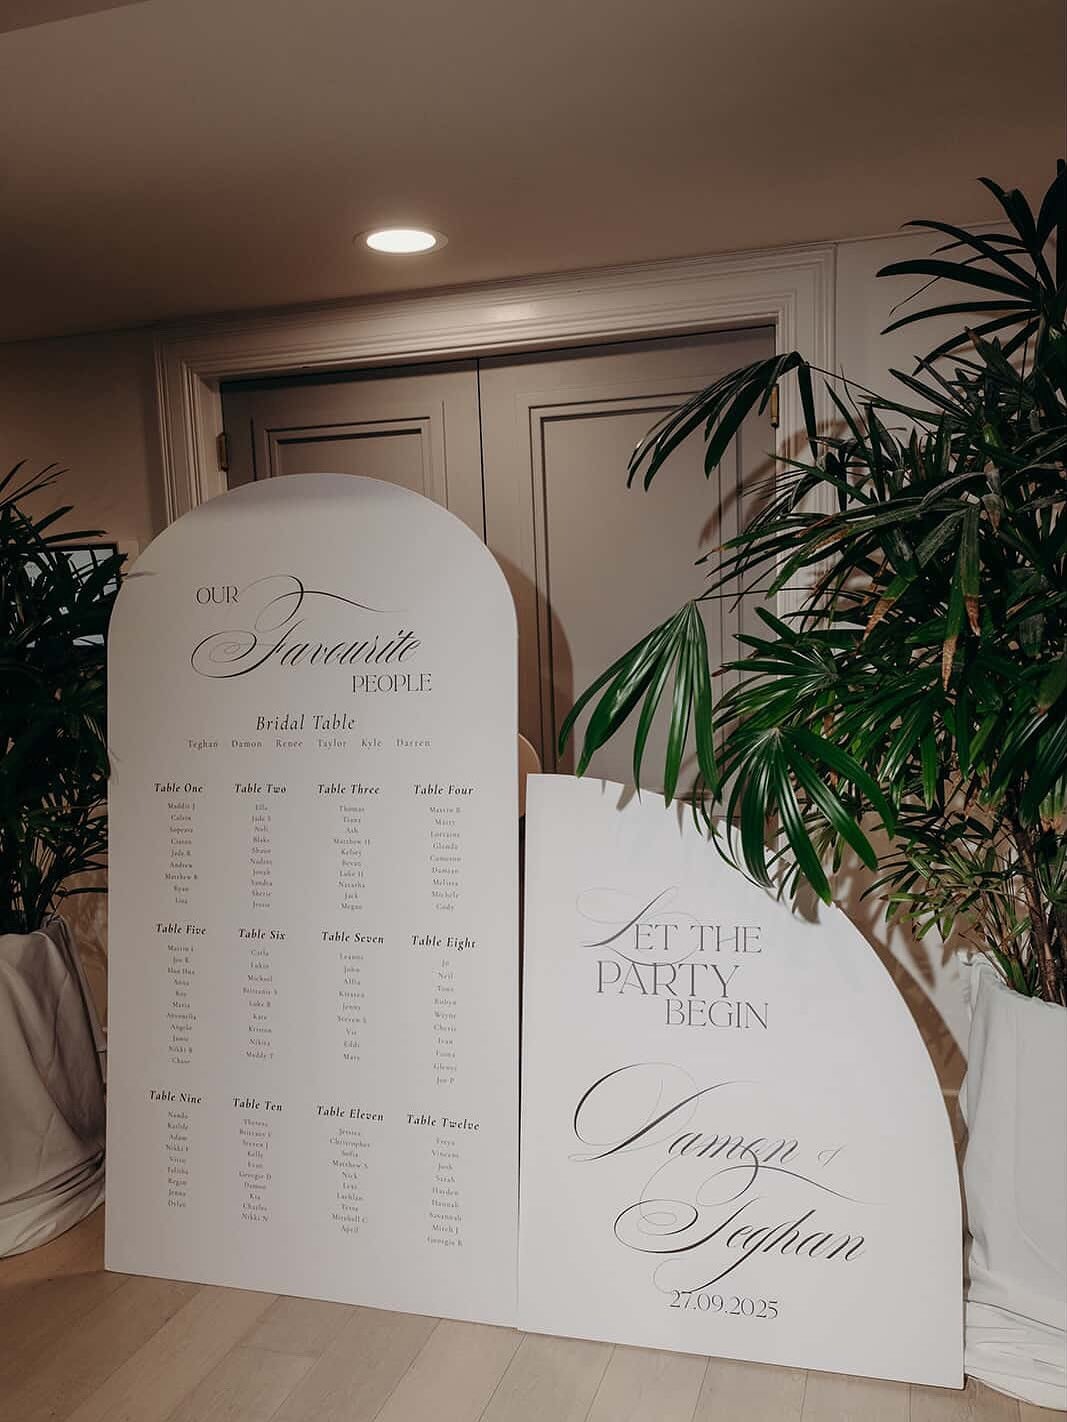 OUR
Favourite
PEOPLE
Bridal Table
Teghan Damon Renee Taylor Kyle Darren
Table One
Maddie J
Calvin
Ciaran
Jade R
Andrew
Matthew B
Ryan
Lisa
Table Two
Ella
Jade S
Blake
Shaun
Nadine
Jonah
Sandra
Sherie
Jessie
Table Three
Thomas
Tiana
Ash
Matthew H
Kelsey
Bevan
Luke H
Natasha
Jack
Megan
Table Four
Martin B
Marty
Lorraine
Glenda
Cameron
Damian
Melissa
Michele
Cody
Table Five
Joe K
Anna
Roy
Maria
Antonella
Angelo
Jamie
Nikki B
Chase
Table Six
Carla
Lukas
Michael
Brittanie S
Luke B
Kate
Kriston
Nikita
Maddy T
Table Seven
Leanne
John
Allia
Kirsten
Jenny
Steven S
Vic
Eddy
Mary
Table Eight
Jo
Neil
Tony
Robyn
Wayne
Cherie
Ivan
Fiona
Glenys
Joe P
Table Nine
Adam
Nikki F
Talisha
Regan
Jenna
Dylan
Table Ten
Theresa
Brittany V
Steven J
Kelly
Evan
Georgie D
Damon
Kia
Charles
Nikki N
Table Eleven
Jessica
Christopher
Sofia
Matthew S
Nick
Lexi
Lachlan
Tesse
Mitchell C
April
Table Twelve
Freya
Vincent
Josh
Sarah
Hayden
Hannah
Savannah
Mitch J
Georgie R
LET THE
PARTY
BEGIN
Damon &
Teghan
27.09.2025